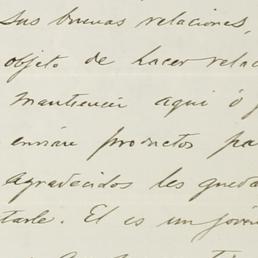 sus buenas relaciones,
objeto de hacer relac
mantienen aquí ó
enviare productos pa
agradecidos les queda
tarle. El es un jóv